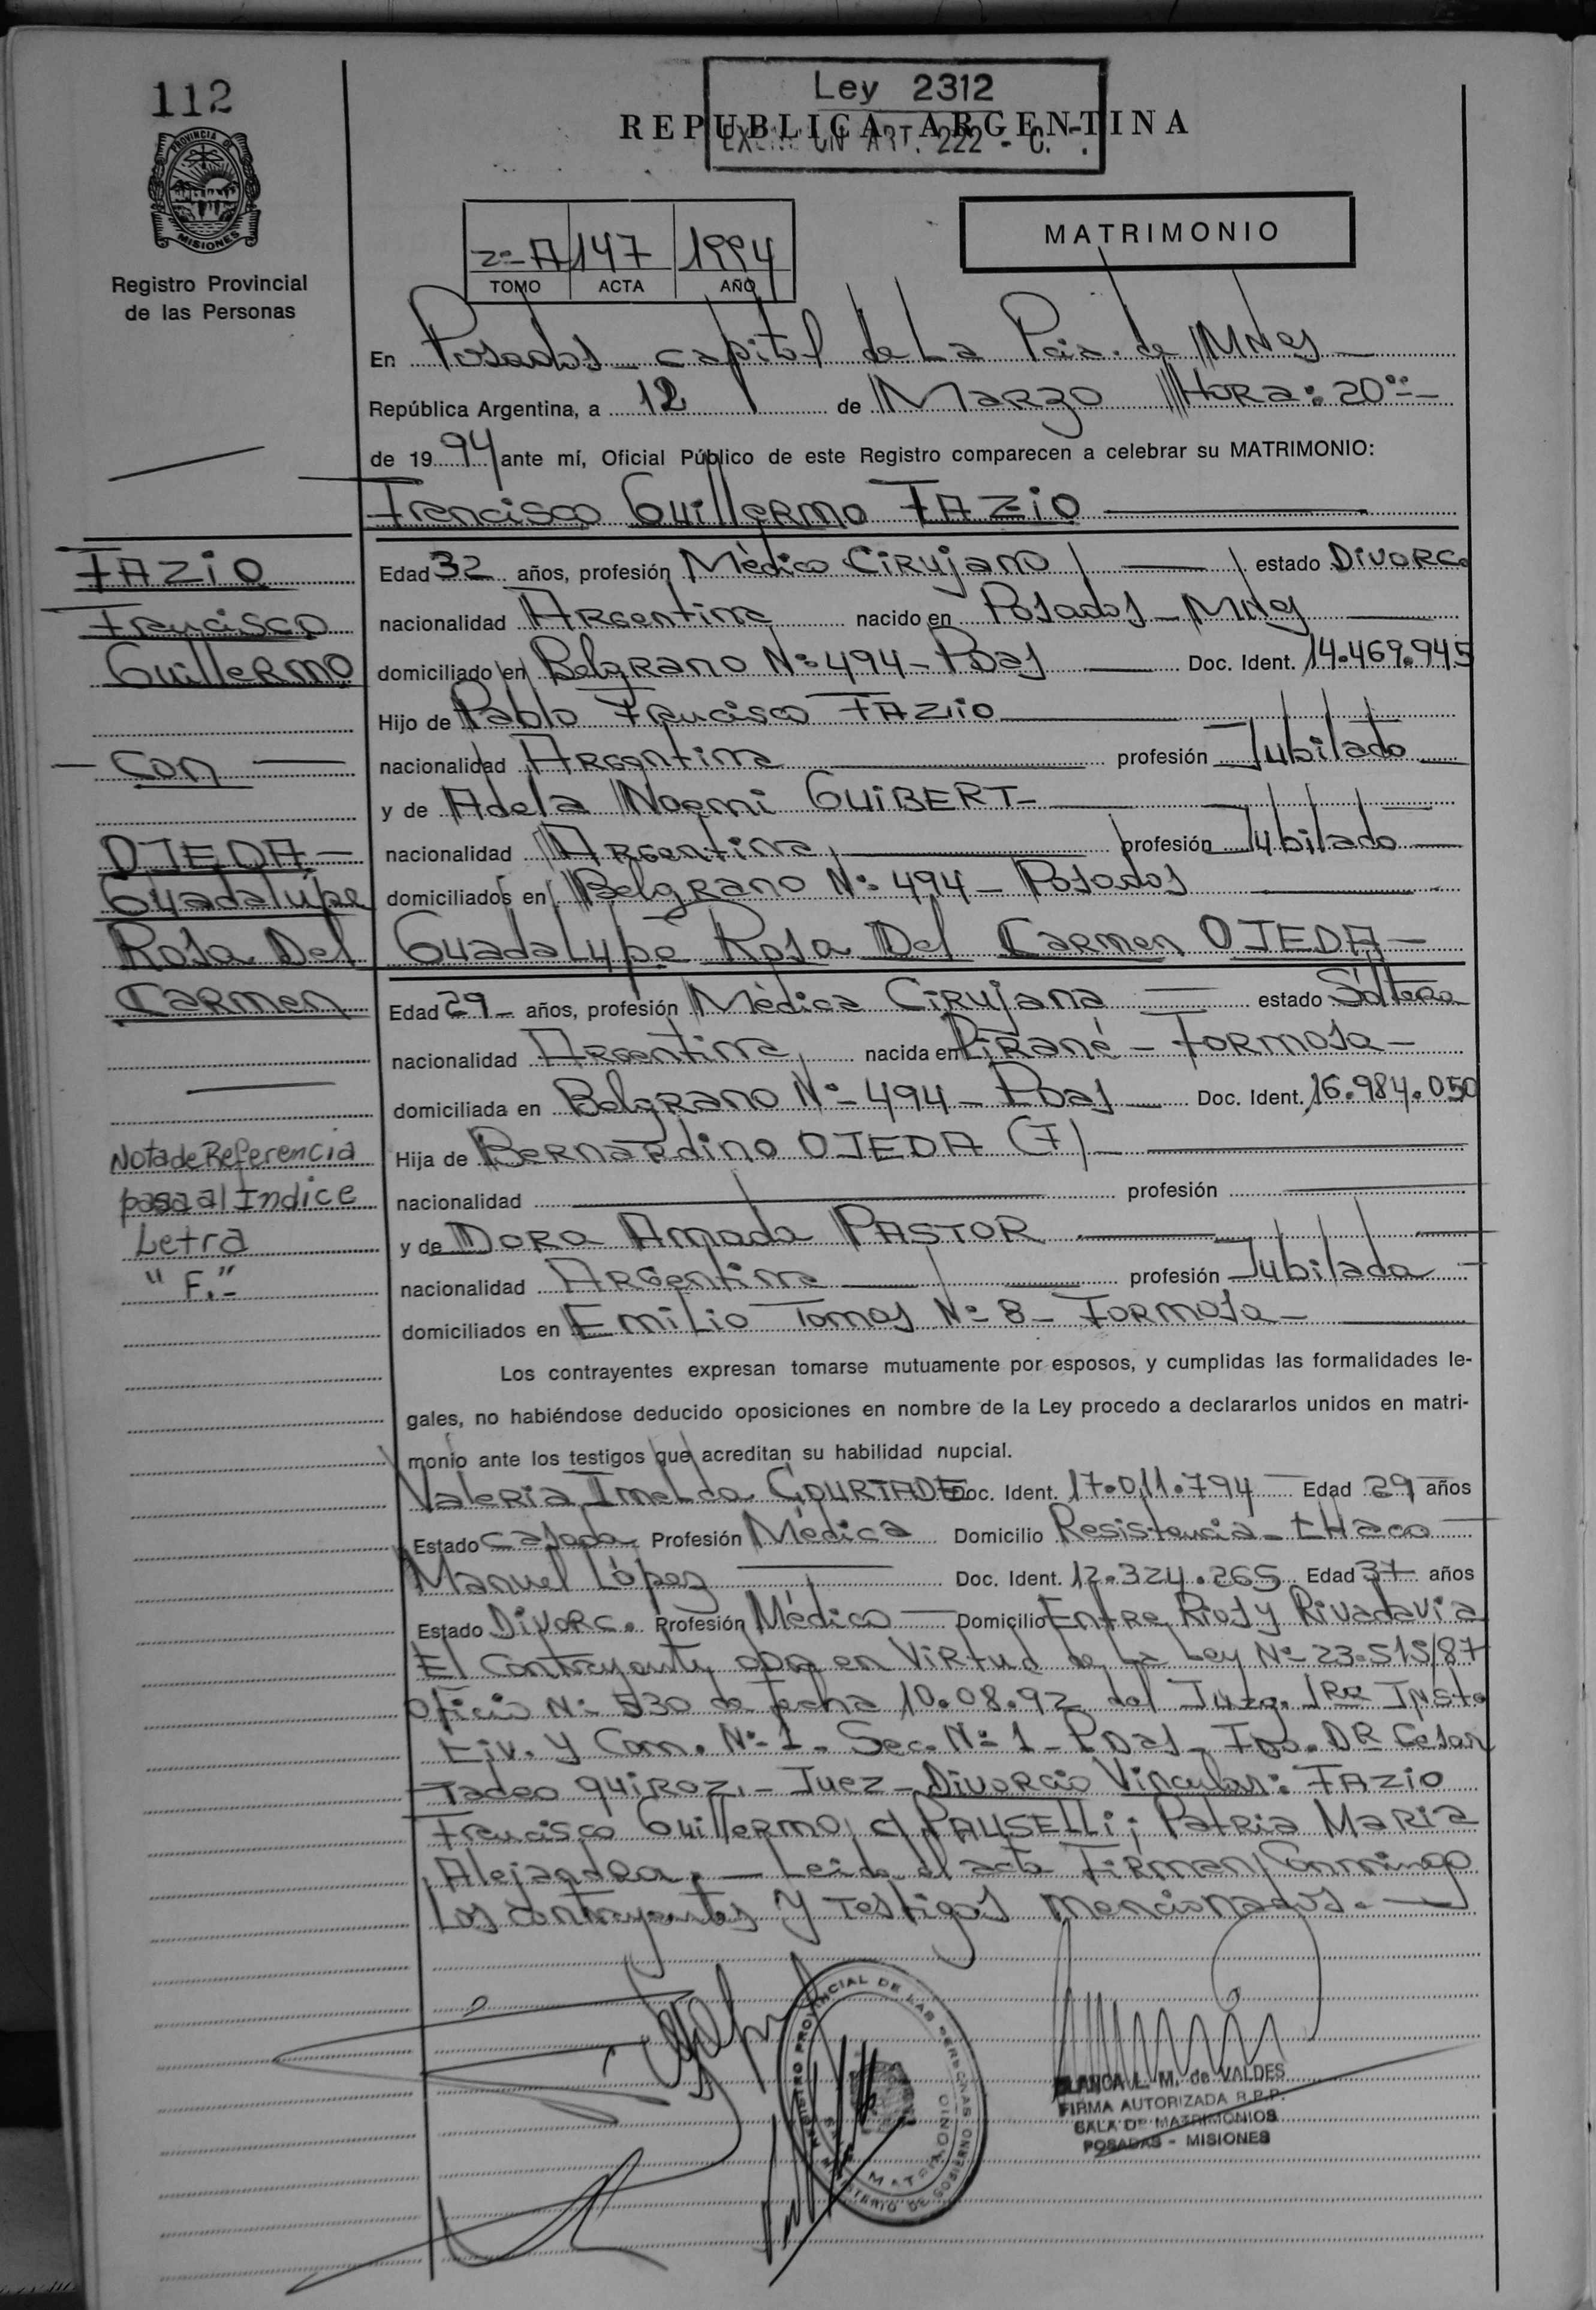 112
Ley 2312
REPUBLICA ARGENTINA
ART. 222 - C.
PROVINCIA DE
MISIONES
Registro Provincial
de las Personas
2º-A 147 1994
TOMO ACTA AÑO
MATRIMONIO
En Posadas capital de La Pcia. de Mnes
República Argentina, a 12 de Marzo Hora: 20ºº-
de 1994 ante mí, Oficial Público de este Registro comparecen a celebrar su MATRIMONIO:
Francisco Guillermo FAZIO
FAZIO
Francisco
Guillermo
Con
OJEDA-
Guadalupe
Rosa Del
Carmen
Nota de Referencia
pasa al Indice
Letra
"F."-
Edad 32 años, profesión Mèdico Cirujano estado Divorc.
nacionalidad Argentina nacido en Posadas - Mnes
domiciliado en Belgrano Nº 494 - Pdas Doc. Ident. 14.469.945
Hijo de Pablo Francisco FAZIO
nacionalidad Argentina profesión Jubilado
y de Adela Noemi GUIBERT-
nacionalidad Argentina profesión Jubilado
domiciliados en Belgrano Nº 494 - Posadas
Guadalupe Rosa Del Carmen OJEDA-
Edad 29- años, profesión Mèdica Cirujana estado Soltera
nacionalidad Argentina nacida en Pirané - Formosa-
domiciliada en Belgrano Nº 494 - Pdas Doc. Ident. 16.984.050
Hija de Bernardino OJEDA (F)
nacionalidad profesión
y de Dora Amada PASTOR
nacionalidad Argentina profesión Jubilada
domiciliados en Emilio Tomas Nº 8 - Formosa-
Los contrayentes expresan tomarse mutuamente por esposos, y cumplidas las formalidades le-
gales, no habiéndose deducido oposiciones en nombre de la Ley procedo a declararlos unidos en matri-
monio ante los testigos que acreditan su habilidad nupcial.
Valeria Imelda COURTADE Doc. Ident. 17.011.794 Edad 29 años
Estado Casada Profesión Médica Domicilio Resistencia - CHaco
Manuel López Doc. Ident. 12.324.265 Edad 37 años
Estado Divorc. Profesión Médico Domicilio Entre Rios y Rivadavia
El Contrayente en Virtud de La Ley Nº 23.515/87
Oficio Nº 530 de Fecha 10.08.92 del Juzg. 1ra Insta
Civ. y Com. Nº 1. Sec. Nº 1 - Pdas - Fdo. DR Cesar
Tadeo quiroz, - Juez - Divorcio Vincular: FAZIO
Francisco Guillermo c/ PAUSELLi; Patria Maria
Alejandra. - Leida el acta Firman Conmigo
Los contrayentes y Testigos mencionados. -
REGISTRO PROVINCIAL DE LAS PERSONAS
MINISTERIO DE GOBIERNO
MATRIMONIO
BLANCA L. M. de VALDES
FIRMA AUTORIZADA R.P.P.
SALA DE MATRIMONIOS
POSADAS - MISIONES